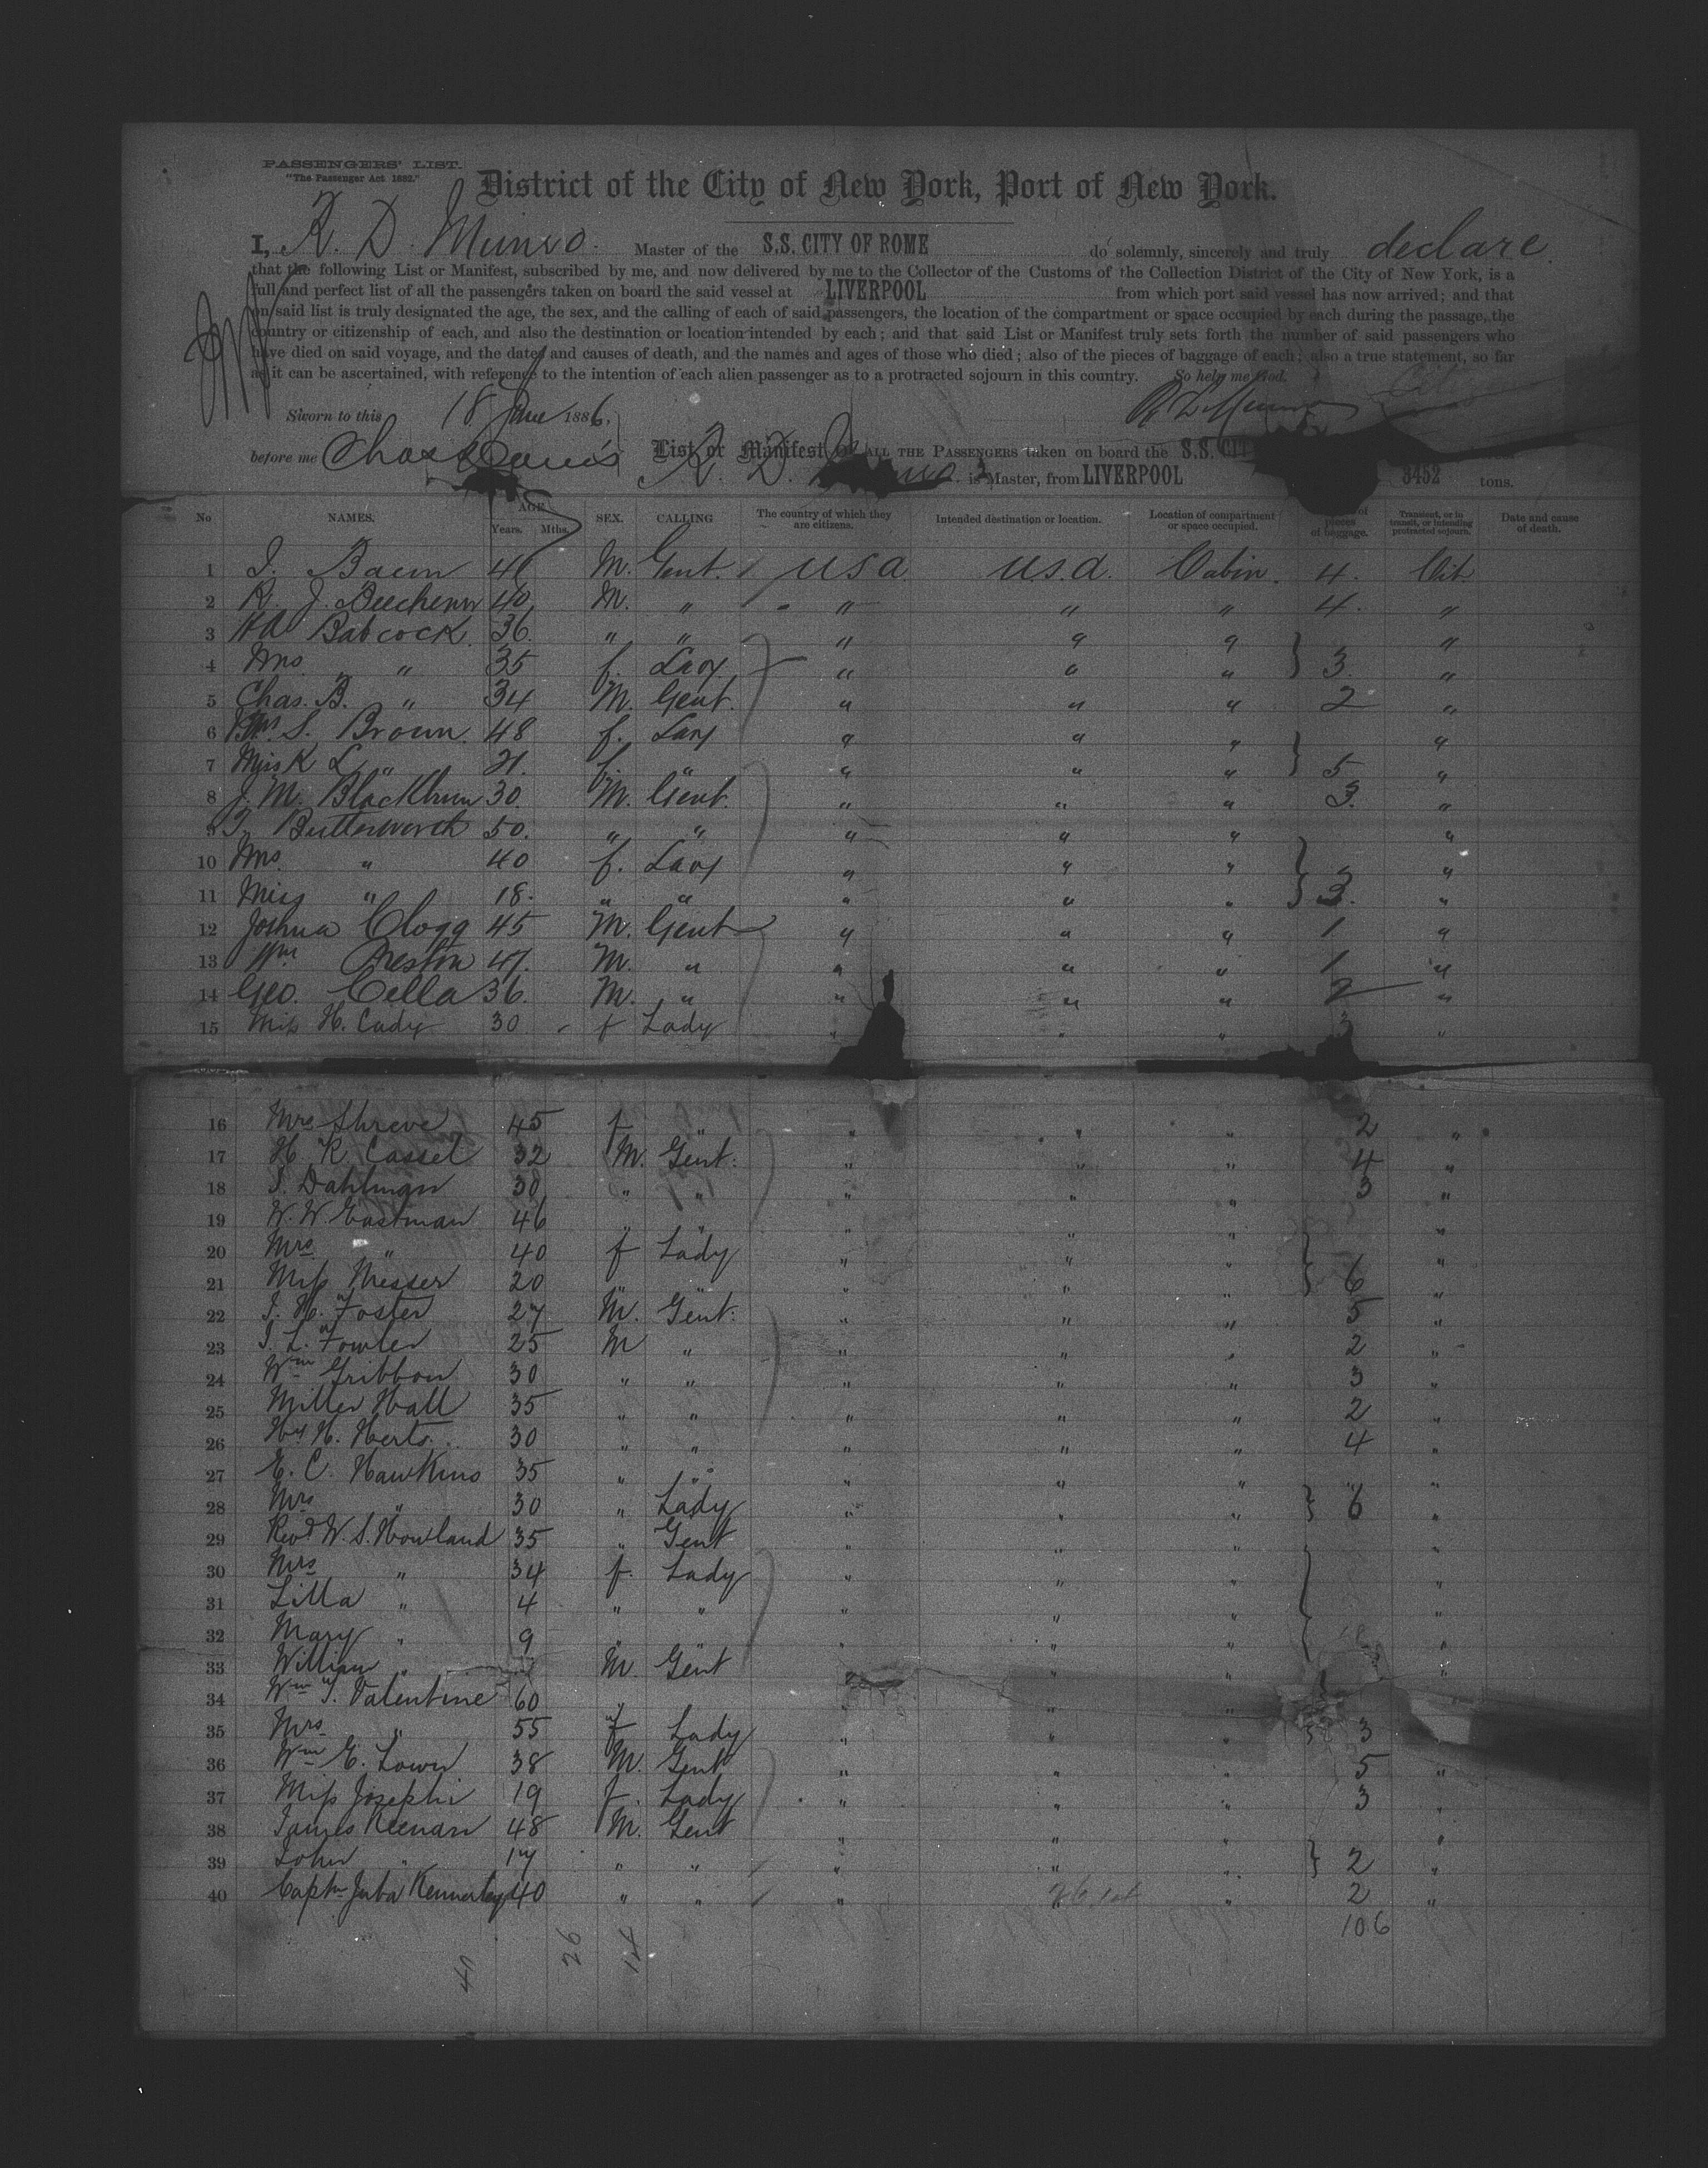 PASSENGERS' LIST.
"The Passenger Act 1882."
District of the City of New York, Port of New York.
I, R. D. Munro. Master of the S.S. CITY OF ROME do solemnly, sincerely and truly declare
that the following List or Manifest, subscribed by me, and now delivered by me to the Collector of the Customs of the Collection District of the City of New York, is a
full and perfect list of all the passengers taken on board the said vessel at LIVERPOOL from which port said vessel has now arrived; and that
on said list is truly designated the age, the sex, and the calling of each of said passengers, the location of the compartment or space occupied by each during the passage, the
country or citizenship of each, and also the destination or location intended by each; and that said List or Manifest truly sets forth the number of said passengers who
have died on said voyage, and the dates and causes of death, and the names and ages of those who died; also of the pieces of baggage of each; also a true statement, so far
as it can be ascertained, with reference to the intention of each alien passenger as to a protracted sojourn in this country. So help me God.
Sworn to this 18 June 1886, R D Munro
before me Chas Davis List or Manifest OF ALL THE PASSENGERS taken on board the S.S. CIT
R. D. Munro. is Master, from LIVERPOOL 3452 tons.
No NAMES. AGE Years. Mths. SEX. CALLING The country of which they are citizens. Intended destination or location. Location of compartment or space occupied. of pieces of baggage. Transient, or in transit, or intending protracted sojourn. Date and cause of death.
1 M. Gent. USA U.S.A. Cabin. 4. Cit
2 R. J. 40 M. " " " " 4. "
3 Babcock 36. " " " " " "
4 Mrs " 35 f. Lady " " " 3. "
5 Chas. B. " 34 M. Gent. " " " 2 "
6 Mrs. S. Brown. 48 f. Lady " " " "
7 Miss K L " 21. f. " " " " 5 "
8 J. M. Blackburn 30. M. Gent. " " " 3. "
9 Butterworth 50. " " " " " "
10 Mrs " 40 f. Lady " " " "
11 Miss " 18. " " " " " 3. "
12 Joshua Clogg 45 M. Gent " " " 1 "
13 Wm Preston 47. M. " " " " 1 "
14 Geo. Cella 36. M. " " " " 2 "
15 Miss H. Cady 30 f Lady " " " 3 "
16 Mrs Shreve 45 f " " " " 2 "
17 H. K Cassel 32 M. Gent: " " " 4 "
18 S. Dahlman 30 " " " " " 3 "
19 W. W. Eastman 46 " " " " " "
20 Mrs " 40 f Lady " " " "
21 Miss Messer 20 " " " " " 6 "
22 J. H. Foster 27 M. Gent: " " " 5 "
23 J. L. Fowler 25 M " " " " 2 "
24 Wm Gribbon 30 " " " " " 3 "
25 Miller Hall 35 " " " " " 2 "
26 Hy H. Herts. 30 " " " " " 4 "
27 E. C. Hawkins 35 " " " " " " "
28 Mrs " 30 " Lady " " " 6 "
29 Revd W. S. Howland 35 " Gent " " " "
30 Mrs " 34 f. Lady " " " "
31 Lilla " 4 " " " " " "
32 Mary " 9 " " " " " "
33 William " M. Gent " " " "
34 Wm T. Valentine 60 " " "
35 Mrs " 55 f Lady " " " 3
36 Wm E. Lown 38 M. Gent " " " 5 "
37 Miss Josephi 19 f. Lady " " " 3 "
38 James Keenan 48 M. Gent " " " "
39 John " 17 " " " " " 2 "
40 Captn Juba Kennerley 40 " " " " 2 "
106
40 26 14